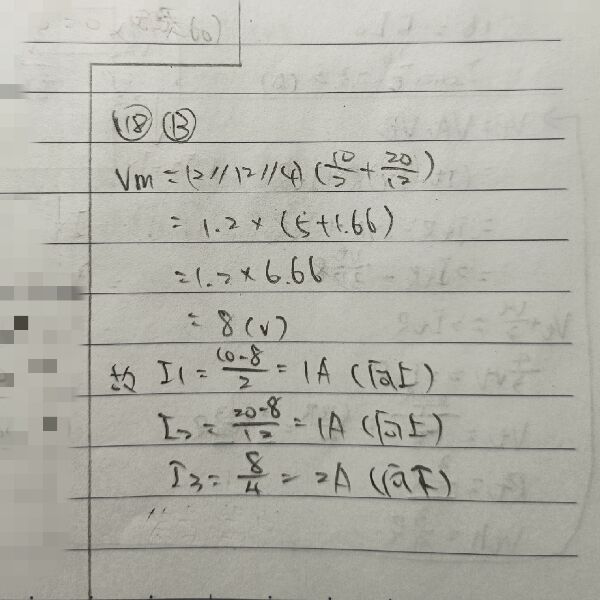 ⑱ Ⓑ
Vm = (2 // 12 // 4) (10/2 + 20/12)
= 1.2 × (5+1.66)
= 1.2 × 6.66
= 8 (V)
故 I1 = 10-8/2 = 1A (向上)
I2 = 20-8/12 = 1A (向上)
I3 = 8/4 = 2A (向下)